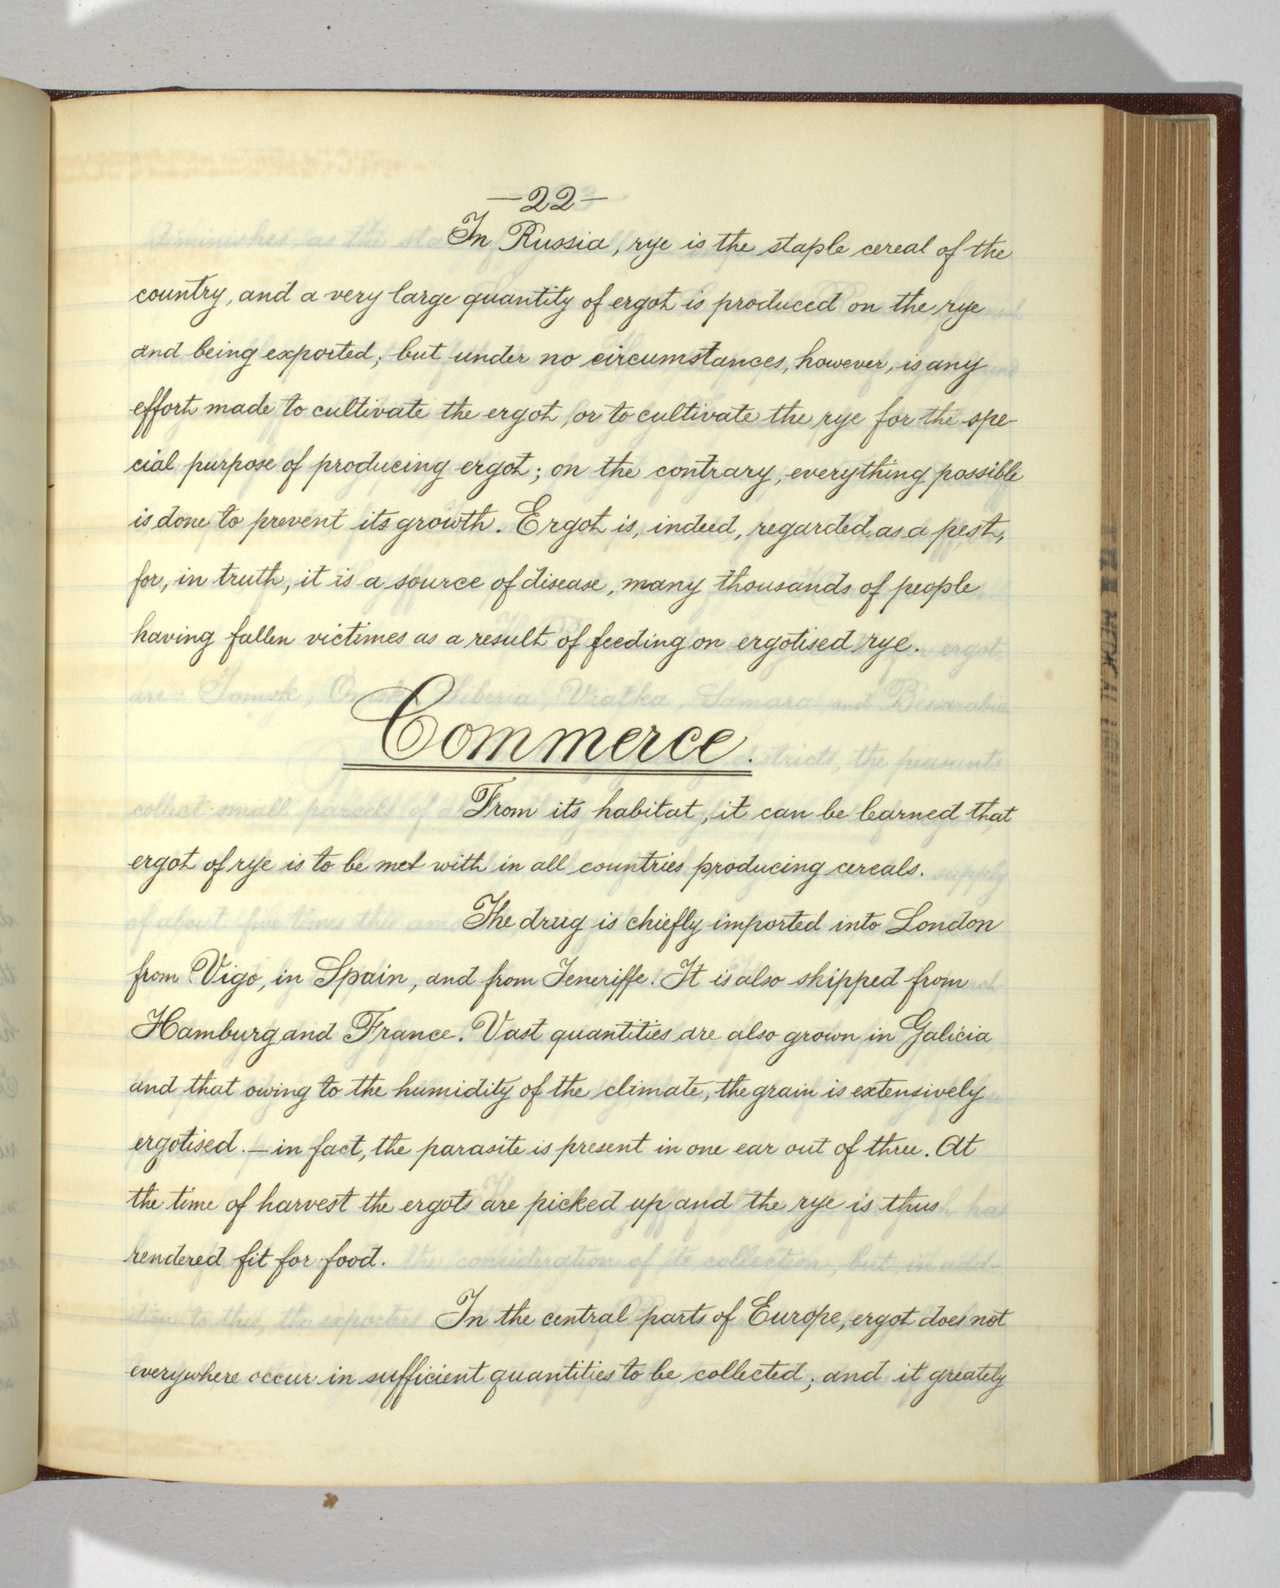 —22—
In Russia, rye is the staple cereal of the
country, and a very large quantity of ergot is produced on the rye
and being exported; but under no circumstances, however, is any
effort made to cultivate the ergot, or to cultivate the rye for the spe-
cial purpose of producing ergot; on the contrary, everything possible
is done to prevent its growth. Ergot is, indeed, regarded as a pest,
for, in truth, it is a source of disease, many thousands of people
having fallen victimes as a result of feeding on ergotised rye.
Commerce.
From its habitat, it can be learned that
ergot of rye is to be met with in all countries producing cereals.
The drug is chiefly imported into London
from Vigo, in Spain, and from Teneriffe. It is also skipped from
Hamburg and France. Vast quantities are also grown in Galicia
and that owing to the humidity of the climate, the grain is extensively
ergotised. — in fact, the parasite is present in one ear out of three. At
the time of harvest the ergots are picked up and the rye is thus
rendered fit for food.
In the central parts of Europe, ergot does not
everywhere occur in sufficient quantities to be collected; and it greately